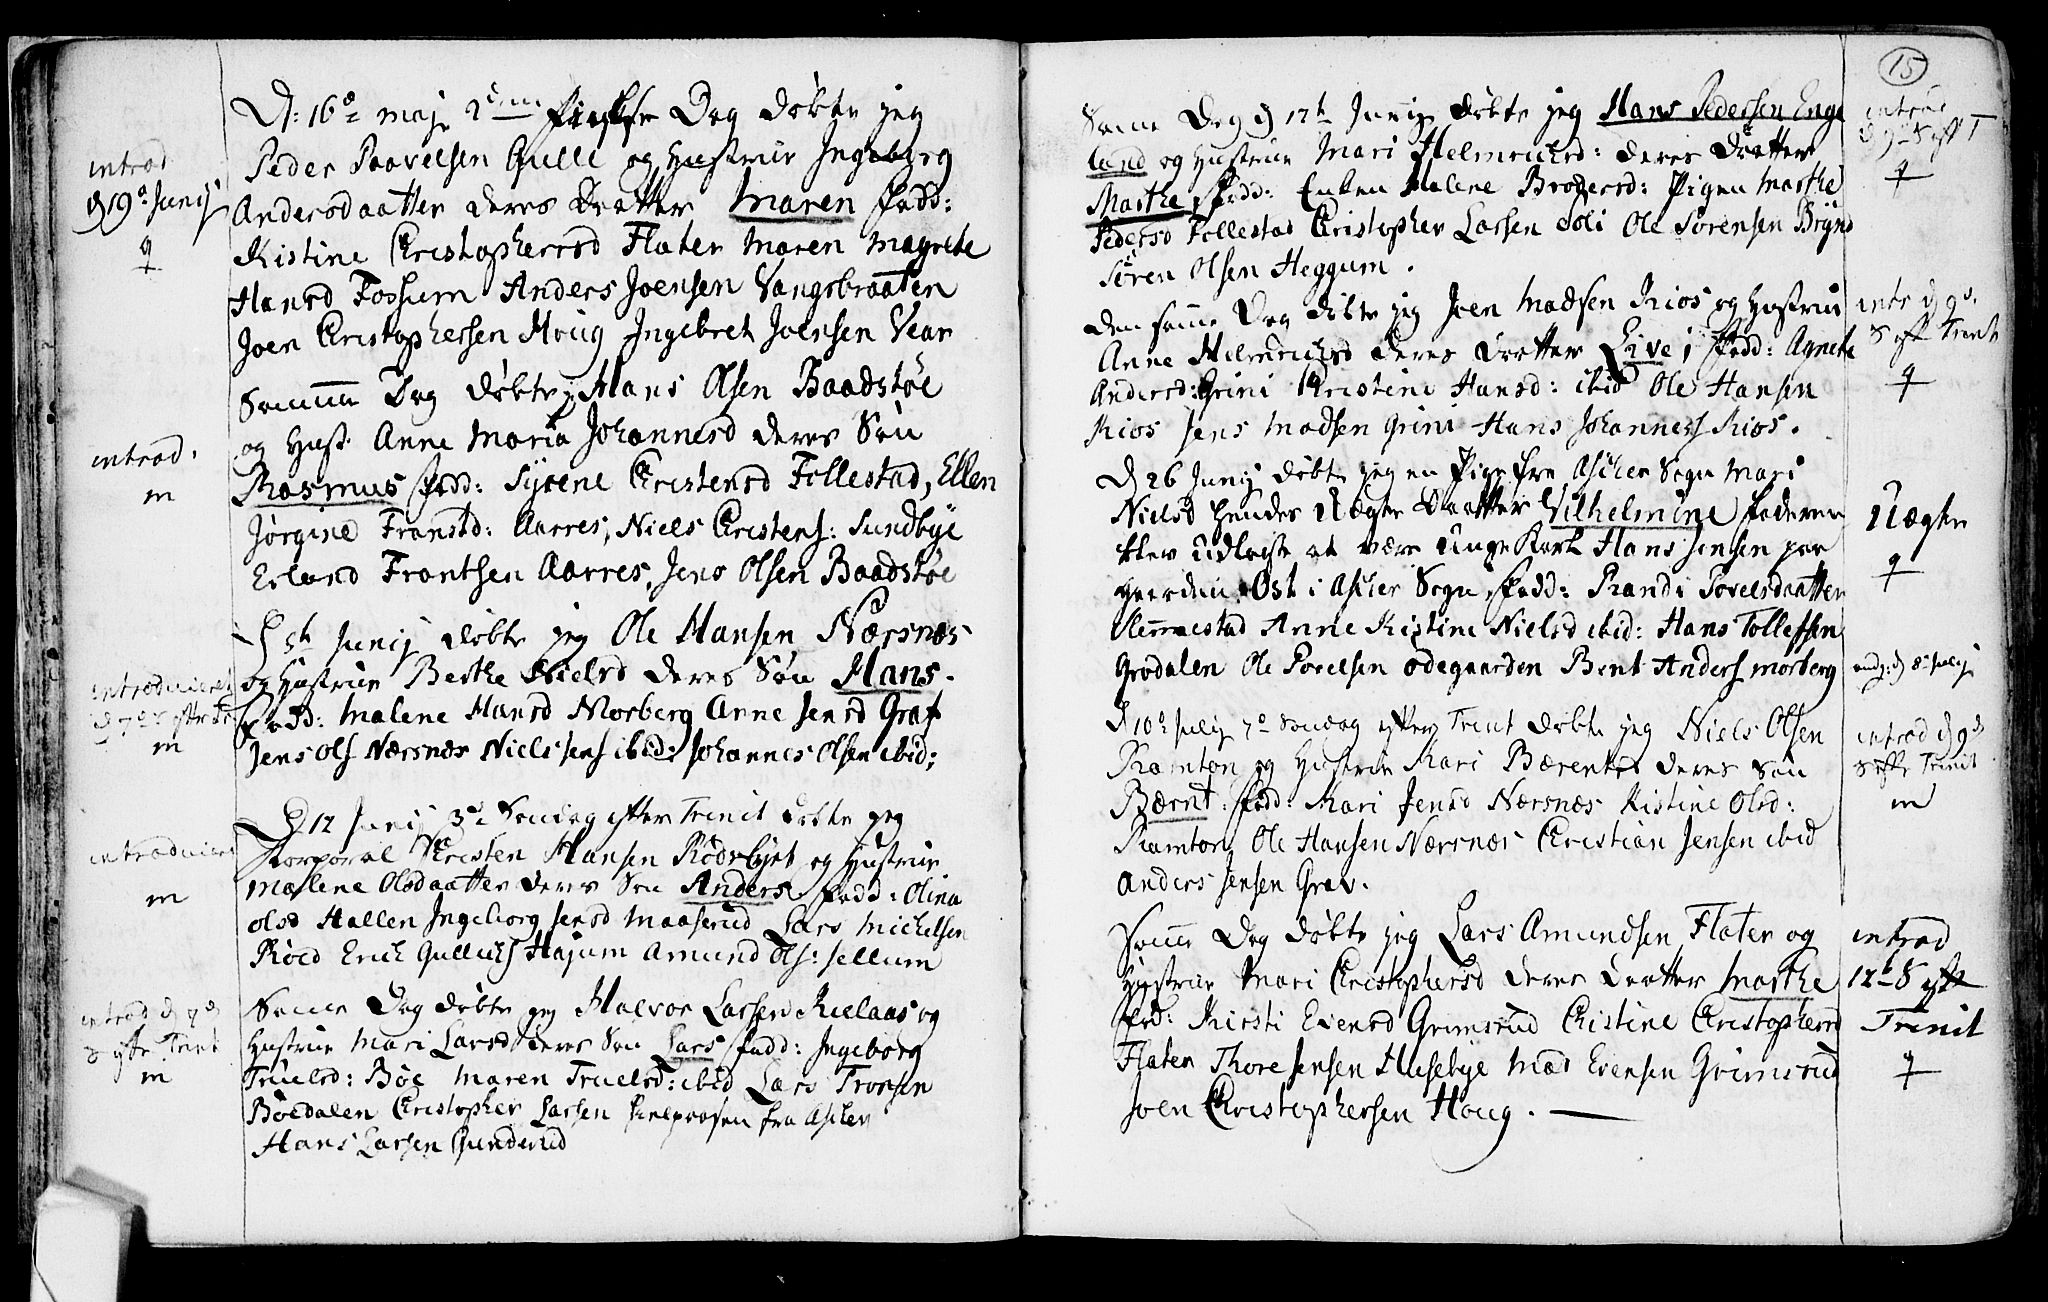 D: 16de maj 2den Pintse Dag døbte jeg
Peder Paavelsen Gulle og Hustrue Ingeborg
introd
d 19de Junij
q
Andersdaatter deres Daatter Maren fadd:
Kistine Christophersd Flaten Maren Magrete
Hansd Fossum Anders Joensen Vangsbraaten
Joen Christophersen Houg Ingebret Joensen Vear
Samme Dag døbte Hans Olsen Baadstøe
og Hust Anne Maria Johannesd deres Søn
introd.
m
Rasmus fadd: Syrene Christensd Follestad, Ellen
Jørgine Franstd: Aarres, Niels Christens: Sundbye
Erland Frantsen Aarres, Jens Olsen Baadstøe
D 5th Junij døbte jeg Ole Hansen Nærsnæs
og Hustrue Berthe Nielsd deres Søn Hans.
introduceret
m
Fadd: Malene Hansd Morberg Anne Jensd Graf
Jens Ols Nærsnæs Niels Jens ibid: Johannes Olsen ibid:
D 12 Junij 3de Søndag efter Trinit døbte jeg
introduceret
m
Korporal Christen Hansen Rødsbyet og Hustrue
Malene Olsdaatter deres Søn Anders fadd: Olina
Olsd Hallen Ingeborg Jensd Maaserud Lars Michelsen
Røed Erich Gullichs Hajum Amund Ols: Sellum
introd d 7de
S efte Trint
m
Samme Dag døbte jeg Halvor Larsen Kielaas og
Hustrue Mari Larsd deres Søn Lars fadd: Ingeborg
Truelsd: Bøe Maren Truelsd: ibid Lars Tronsen
Bøedalen Christopher Larsen fra Asker
Hans Larsen Gunderud
15
Samme Dag d 12th Junij døbte jeg Hans Pedersen Enge
land og Hustrue Mari Helmrichsd: deres Daatter
Marthe, fadd: Enken Malene Brodersd: Pigen Marthe
introd
q
Pedersd Follestad Christopher Larsen Soli Ole Sørensen Brynd
Søren Olsen Heggum.
Den samme Dag døbte jeg Joen Madsen Kios og Hustrue
Anne Helmrichsd deres Daatter Live; fadd: Agnete
Andersd: Grini Christine Hansd: ibid Ole Hansen
Kios Jens Madsen Grini Hans Johanness Kios.
intr d 9d.
S eft Trinit
q
D 26 Junij døbte jeg en Pige fra Asker Sogn Mari
Nielsd hendes Uægte Daatter Vilhelmine faderen
blev Udlagt at være Unge Karl Hans Jensen paa
Øst i Asker Sogn, fadd: Randi Povelsdaatter
Uægte
q
Slemmestad Anne Kistine Nielsd ibid: Hans Tollefsen
Grødalen Ole Povelsen Ødegaarden Bent Anders Morberg
D 10de Julij 7de Søndag efter Trinit døbte jeg Niels Olsen
Ramton og Hustrue Kari Bærentsd deres Søn
Bærnt. fadd: Mari Jensd Nærsnæs Kistine Olsd:
Ramton, Ole Hansen Nærsnæs Christian Jensen ibid
Anders Jensen Grav.
introd d 9d
S efte Trinit
m
Samme Dag døbte jeg Lars Amundsen Flaten og
Hustrue Mari Christophersd deres Daatter Marthe
Fad: Kirsti Evensd Grimsrud Christine Christophersd
Flaten Thore Jensen Husebye Mad Evensen Grimsrud
Joen Christophersen Houg.
introd
12te S eft
Trinit
q